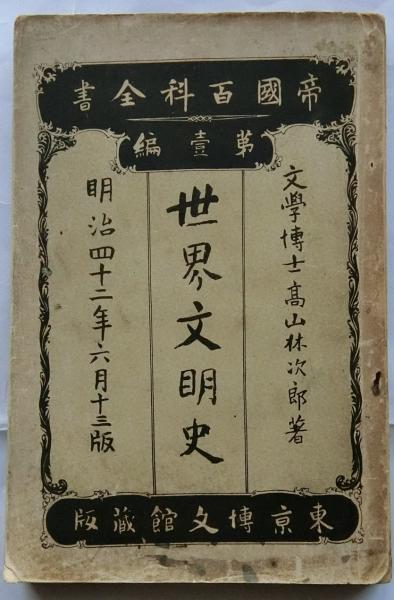 帝國百科全書
第壹編
文學博士高山林次郎著
世界文明史
明治四十二年六月十三版
東京博文館藏版